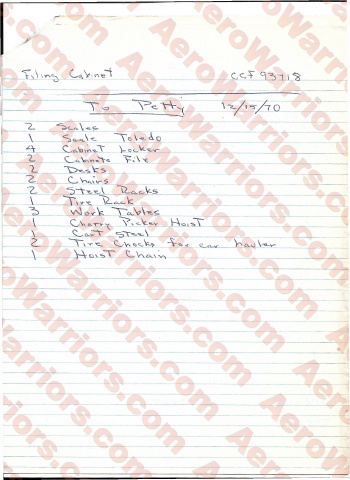 Filing Cabinet CCF 93718
To Petty 12/15/70
2 Scales
1 Scale Toledo
4 Cabinet Locker
2 Cabinets File
2 Desks
2 Chairs
2 Steel Racks
1 Tire Rack
3 Work Tables
1 Cherry Picker Hoist
1 Cart Steel
2 Tire Chocks for car hauler
1 Hoist Chain
AeroWarriors.com